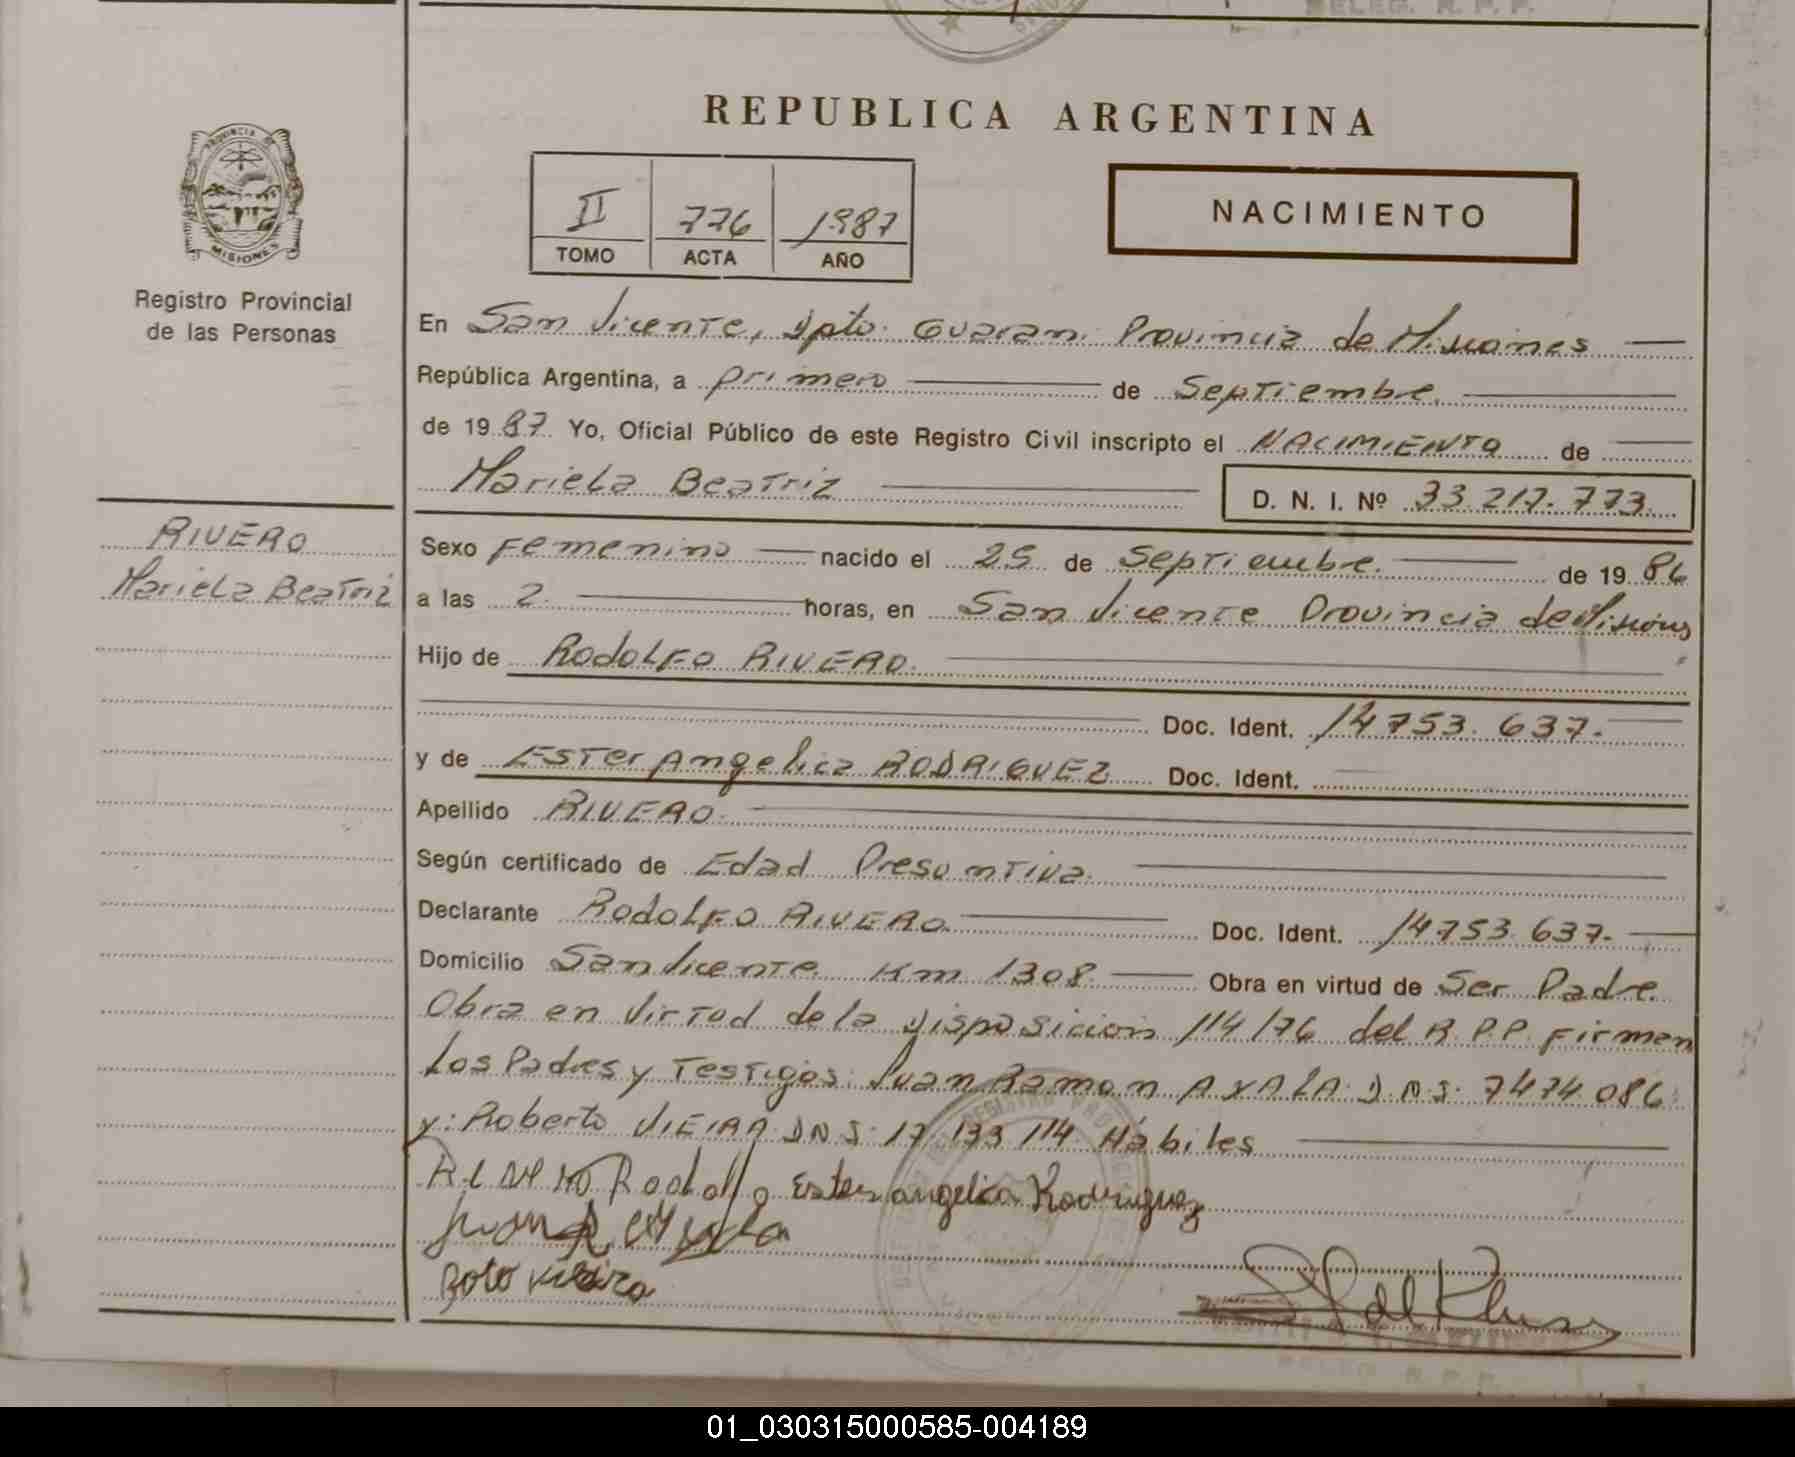 DELEG. R. P. P.
REPUBLICA ARGENTINA
PROVINCIA DE MISIONES
Registro Provincial
de las Personas
II 776 1987
TOMO ACTA AÑO
NACIMIENTO
En San Vicente, Dpto. Guarani Provincia de Misiones
República Argentina, a primero de Septiembre
de 1987 Yo, Oficial Público de este Registro Civil inscripto el NACIMIENTO de
Mariela Beatriz D. N. I. Nº 33.217.773
RIVERO
Mariela Beatriz
Sexo Femenino nacido el 25 de Septiembre de 1986
a las 2 horas, en San Vicente Provincia de Misiones
Hijo de Rodolfo RIVERO.
Doc. Ident. 14753.637.
y de Ester Angelica RODRIGUEZ Doc. Ident.
Apellido RIVERO.
Según certificado de Edad Presuntiva.
Declarante Rodolfo RIVERO Doc. Ident. 14753.637.
Domicilio San Vicente Km 1308. Obra en virtud de Ser Padre
Obra en virtud de la Disposicion 114/76 del R.P.P. Firmen
Los Padres y Testigos: Juan Ramon AYALA D.N.I. 7474086
y: Roberto VIEIRA D N I: 17 133 114 Habiles
Rodolfo Ester angelica Rodriguez
DELEG. R. P. P.
01_030315000585-004189